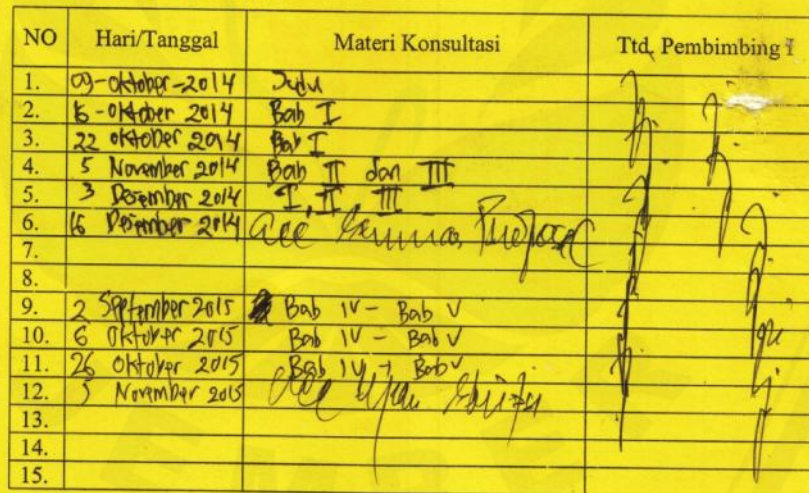 NO Hari/Tanggal Materi Konsultasi Ttd. Pembimbing I
1. 09-Oktober-2014 Judu
2. 16-Oktober 2014 Bab I
3. 22 Oktober 2014 Bab I
4. 5 November 2014 Bab II dan III
5. 3 Desember 2014 I, II III
6. 16 Desember 2014 acc Seminar Proposal
7.
8.
9. 2 September 2015 Bab IV - Bab V
10. 6 Oktober 2015 Bab IV - Bab V
11. 26 Oktober 2015 Bab IV - Bab V
12. November 2015 Acc Ujian Skripsi
13.
14.
15.